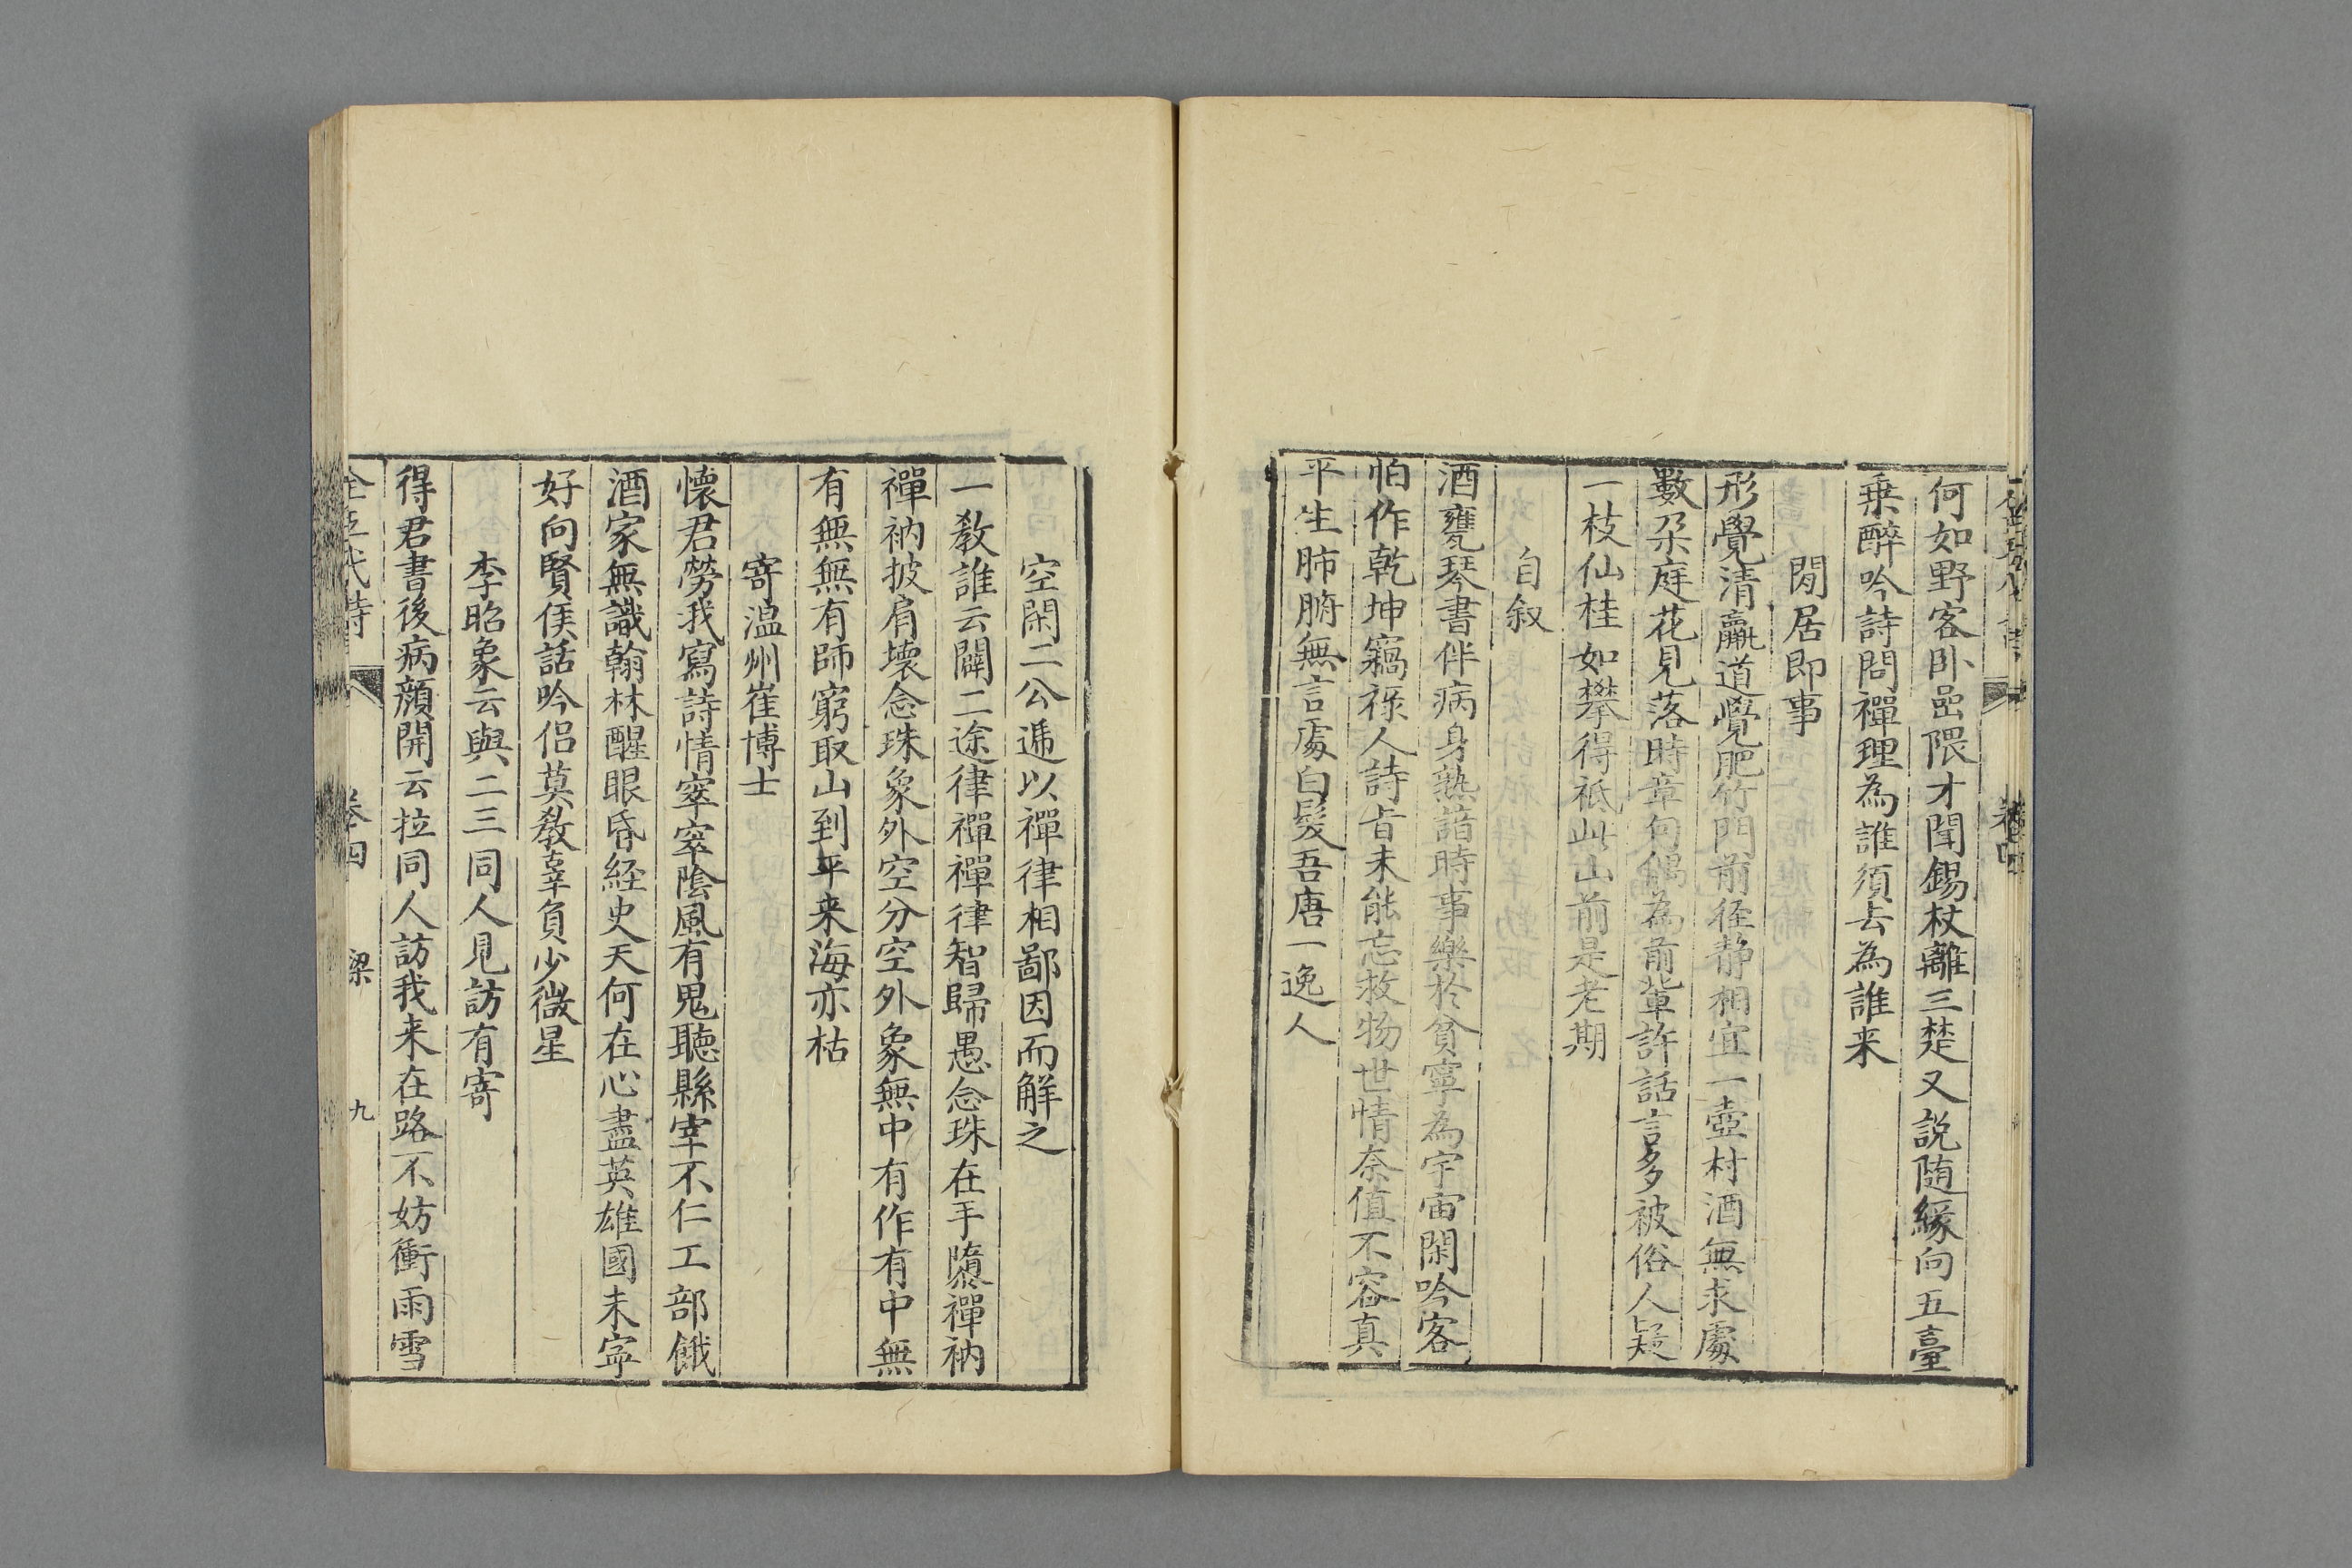 何如野客卧嵒隈才聞錫杖離三楚又説随緣向五臺
乗醉吟詩問禪理為誰須去為誰来
閒居即事
形覺清羸道覺肥竹門前径静相宜一壺村酒無求處
數朶庭花見落時章句偶為前輩許話言多被俗人疑
一枝仙桂如攀得祗此山前是老期
自叙
酒甕琴書伴病身熟諳時事樂於貧寧為宇宙閑吟客
怕作乾坤竊祿人詩㫖未能忘救物世情奈值不容真
平生肺腑無言處白髮吾唐一逸人
空閑二公遞以禪律相鄙因而解之
一教誰云闢二途律禪禪律智歸愚念珠在手隳禪衲
禪衲披肩壊念珠象外空分空外象無中有作有中無
有無無有師窮取山到平来海亦枯
寄溫州崔博士
懷君勞我寫詩情窣窣陰風有鬼聽縣宰不仁工部餓
酒家無識翰林醒眼昏経史天何在心盡英雄國未寕
好向賢侯話吟侣莫教辜負少微星
李昭象云與二三同人見訪有寄
得君書後病顔開云拉同人訪我来在路不妨衝雨雪
全五代詩 卷四 梁 九